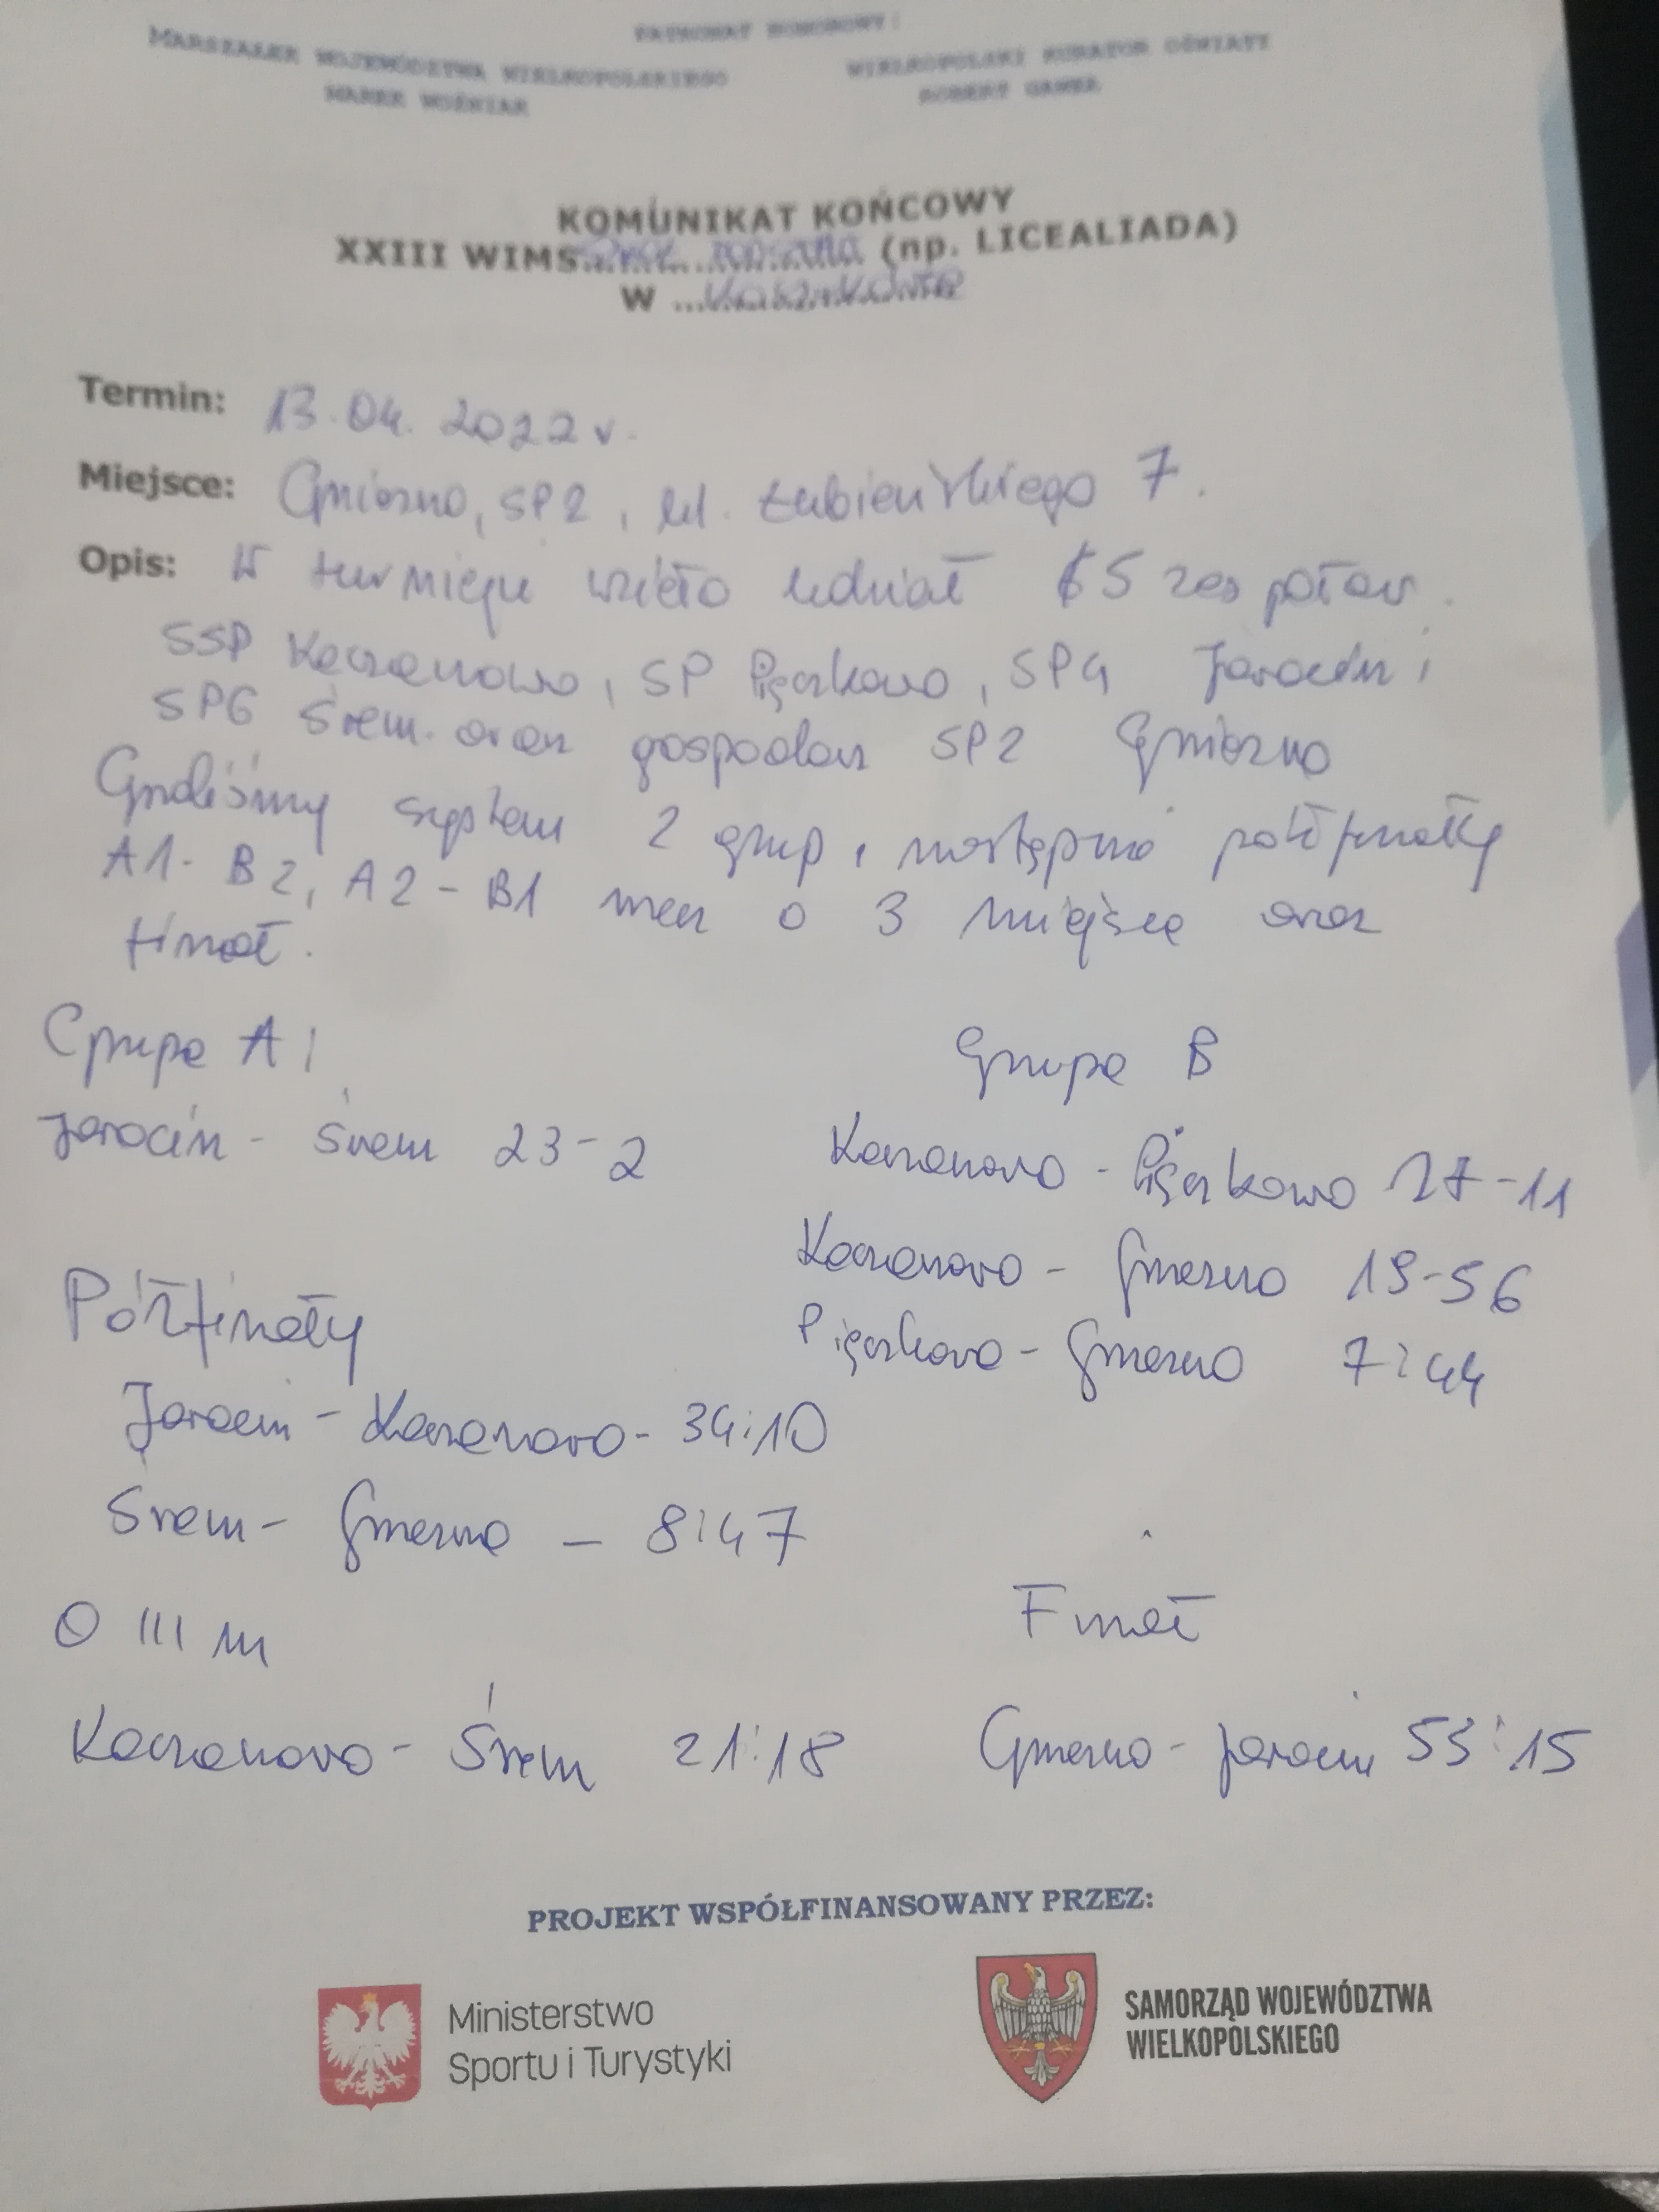 PATRONAT HONOROWY:
MARSZAŁEK WOJEWÓDZTWA WIELKOPOLSKIEGO
MAREK WOŹNIAK
WIELKOPOLSKI KURATOR OŚWIATY
ROBERT GAWEŁ
KOMUNIKAT KOŃCOWY
XXIII WIMS (np. LICEALIADA)
W ...Koszykówce
Termin: 13.04.2022 r.
Miejsce: Gniezno, SP2, ul. Łubieńskiego 7.
Opis: W turnieju wzięło udział 5 zespołów.
SSP Kaczanowo, SP Pięczkowo, SP4 Jarocin i
SP6 Śrem oraz gospodarz SP2 Gniezno
Graliśmy system 2 grup, następnie półfinały
A1-B2, A2-B1 mecz o 3 miejsce oraz
finał.
Grupa A
Jarocin - Śrem 23-2
Grupa B
Kaczanowo - Pięczkowo 27-11
Kaczanowo - Gniezno 19-56
Pięczkowo - Gniezno 7:44
Półfinały
Jarocin - Kaczanowo - 34:10
Śrem - Gniezno - 8:47
O III m
Kaczanowo - Śrem 21:18
Finał
Gniezno - Jarocin 53:15
PROJEKT WSPÓŁFINANSOWANY PRZEZ:
Ministerstwo
Sportu i Turystyki
SAMORZĄD WOJEWÓDZTWA
WIELKOPOLSKIEGO